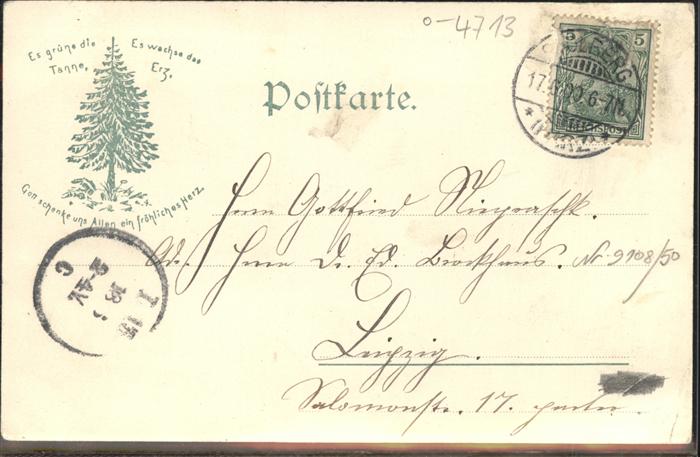 o-4713
Es grüne die
Tanne,
Es wachse das
Erz,
Gott schenke uns Allen ein fröhliches Herz.
Postkarte.
5 5
REICHSPOST
6-7N.
Herrn Gottfried
Adr. Herrn Dr. Ed. Brockhaus. Nr 9108/50
Leipzig.
Salomonstr. 17. parterre